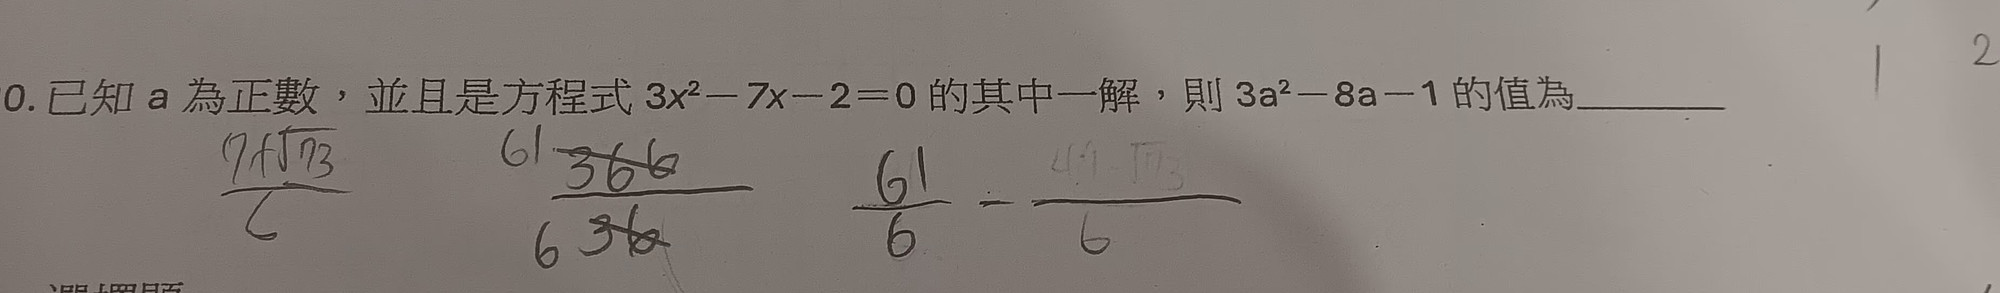 0. 已知 a 為正數，並且是方程式 3x²－7x－2＝0 的其中一解，則 3a²－8a－1 的值為________
7+√73 61 366 61 - 
6 6 36 6 6
1 2